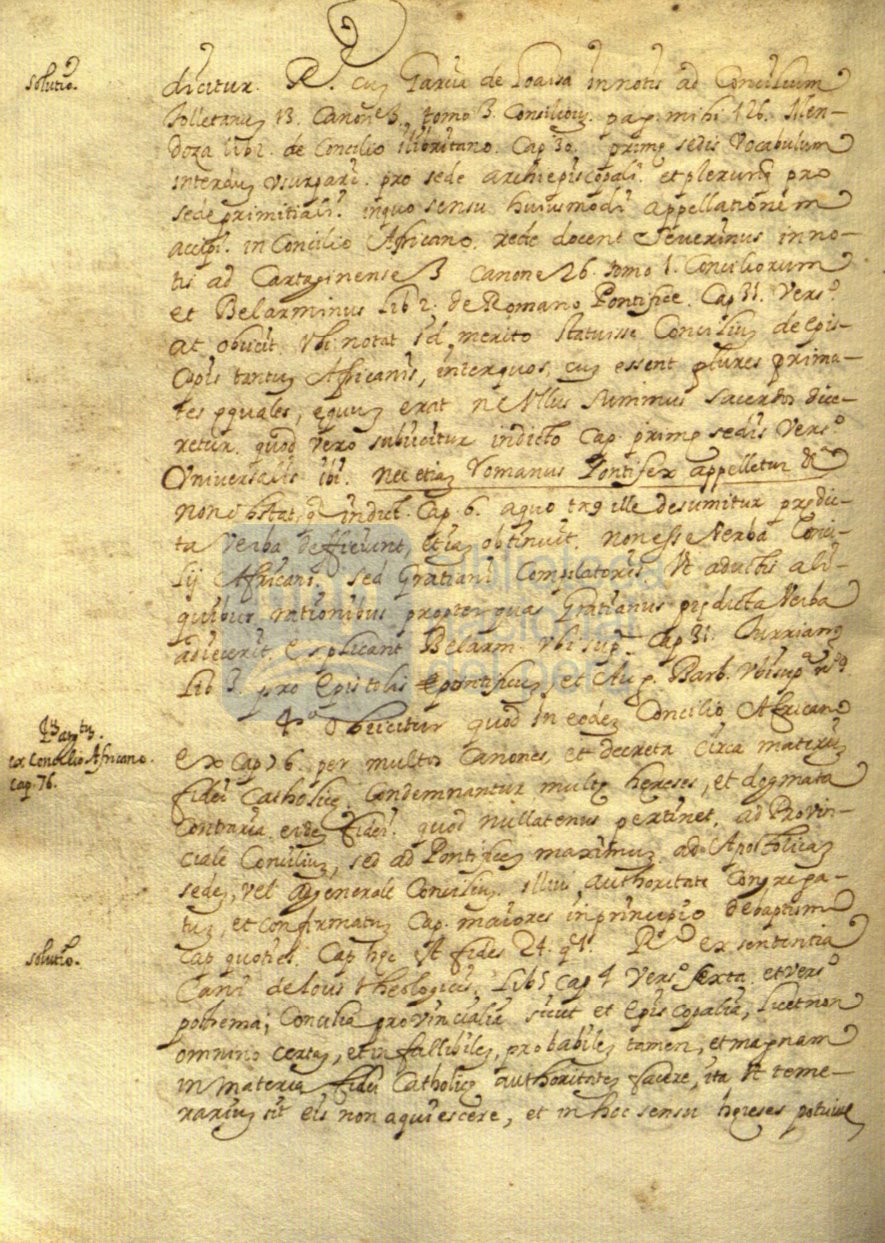 solutio.
dicitur. R. cuʒ Garcia de Loaisa in notis ad Concilium
Tolletanuʒ 13. Canone 3. tomo 3. Consilioruʒ. pag. mihi 126. Men-
doza lib 2. de Concilio illibritano. Cap 30. prime sedis Vocabulum
interduʒ usurpari. pro sede archiepiscopali. et plerunq pro
sede primitiali. in quo sensu huiusmodi appellationem
accipi. in Concilio Africano. recte docent Severinus in no-
tis ad Cartaginense 3 canone 26. tomo 1. Conciliorum
et Belarminus Lib 2. de Romano Pontifice. Cap 31. Versº
at obiicit. Ubi notat id merito statuisse Conciliuʒ de epis-
copis tantuʒ Africanis, inter quos, cuʒ essent plures prima-
tes equales, equuʒ erat ne Ullus summus sacerdos dice-
retur. quod vero subiicitur in dicto Cap. prime sedis Versº
Universalis ibi. nec etiaʒ Romanus Pontifex appelletur &ª
non obstat, q in dict. Cap. 6. a quo ille desumitur predic-
ta Verba deffitiunt, etiaʒ obtinuit. non esse Verba Conci-
lij Africani. sed Gratiani Compilatoris Ut aductis ali-
quibus rationibus propter quas Gratianus predicta Verba
adiecerit. explicant Belarm. Ubi supª Cap 31. Turrianꝰ
Lib 3. pro Epistolis pontificuʒ, et Aug. Barb. Ubi supª nº 9.
4º Obiicitur quod in eodeʒ Concilio Africano
ex Concilio Africano.
Cap. 76.
Ex Cap 76. per multos Canones, et decreta circa materiaʒ
fidei Catholice. Condemnantur multe hereses, et dogmata
Contraria eideʒ fidei. quod nullatenus pertinet. ad Provin-
ciale Conciliuʒ, sed ad Pontificeʒ maximuʒ. ad Apostolicaʒ
sedeʒ, vel ad generale Conciliuʒ. illius authoritate Congrega-
tuʒ, et Confirmatuʒ Cap. maiores in principio de baptismo
Cap quoties. Cap hec est fides 24. q 1. Rº ex sententia
solutio.
Cani de locis theologicis. Lib 5 cap 4 Versº sexta et versº
postrema; Concilia provincialia sicut et Episcopalia, licet non
omnino certaʒ, et infallibileʒ, probabileʒ tamen, et magnam
in materia fidei Catholice authoritateʒ facere, ita Ut teme-
rariuʒ sit eis non aquiescere, et in hoc sensu hereses potuisse